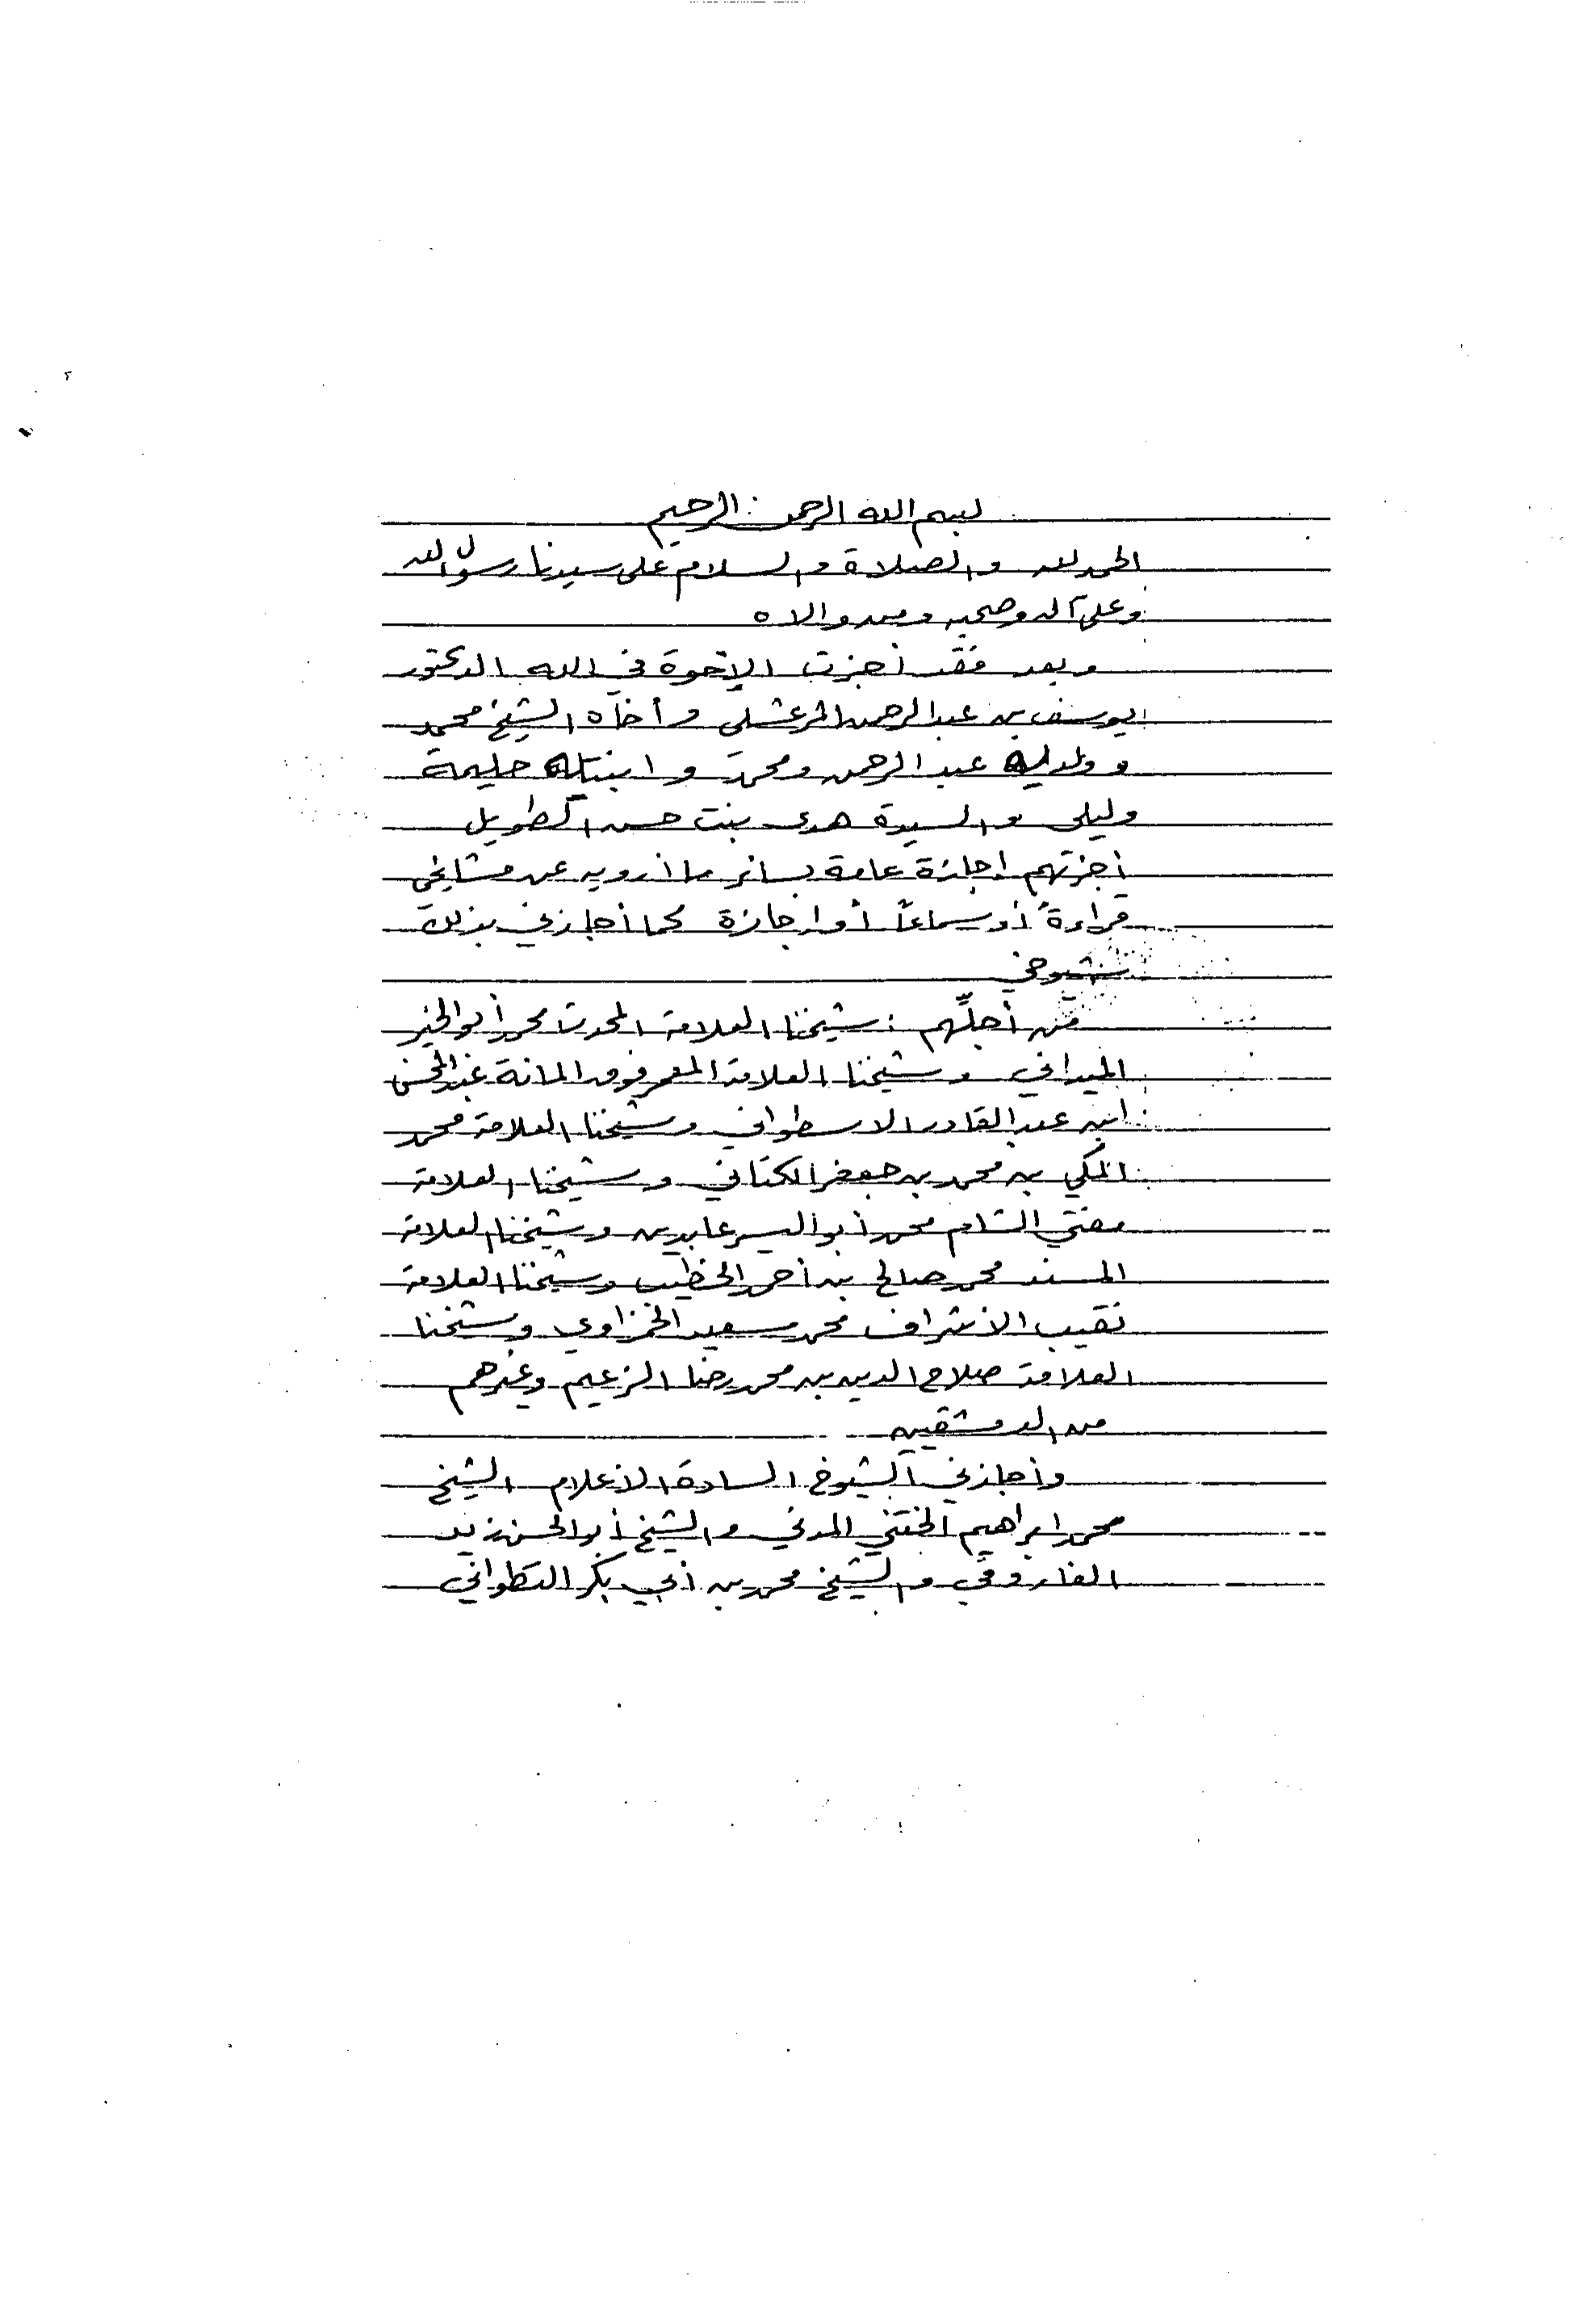 بسم الله الرحمن الرحيم
الحمد لله والصلاة والسلام على سيدنا رسول الله
وعلى آله وصحبه ومن والاه
وبعد فقد أجزت الإخوة في الله الدكتور
يوسف بن عبد الرحمن المرعشلي وأخاه الشيخ محمد
وولديه عبد الرحمن ومحمد وابنتيه حليمة
وليلى والسيدة هدى بنت حسن الطويل
أجزتهم إجازة عامة بسائر ما أرويه عن مشايخي
قراءةً أو سماعاً أو إجازة كما أجازني بذلك
شيوخي
من أجلّهم : شيخنا العلامة المحدث محمد أبو الخير
الميداني وشيخنا العلامة المعمر فوق المائة عبد المحسن
ابن عبد القادر الاسطواني وشيخنا العلامة محمد
المكي بن محمد بن جعفر الكتاني وشيخنا العلامة
مفتي الشام محمد أبو اليسر عابدين وشيخنا العلامة
المسند محمد صالح بن أحمد الخطيب وشيخنا العلامة
نقيب الأشراف محمد سعيد الحمزاوي وشيخنا
العلامة صلاح الدين بن محمد رضا الزعيم وغيرهم
من الدمشقيين
وأجازني الشيوخ السادة الأعلام الشيخ
محمد ابراهيم الختني المدني والشيخ أبو الحسن زيد
الفاروقي والشيخ محمد بن أبي بكر التطواني